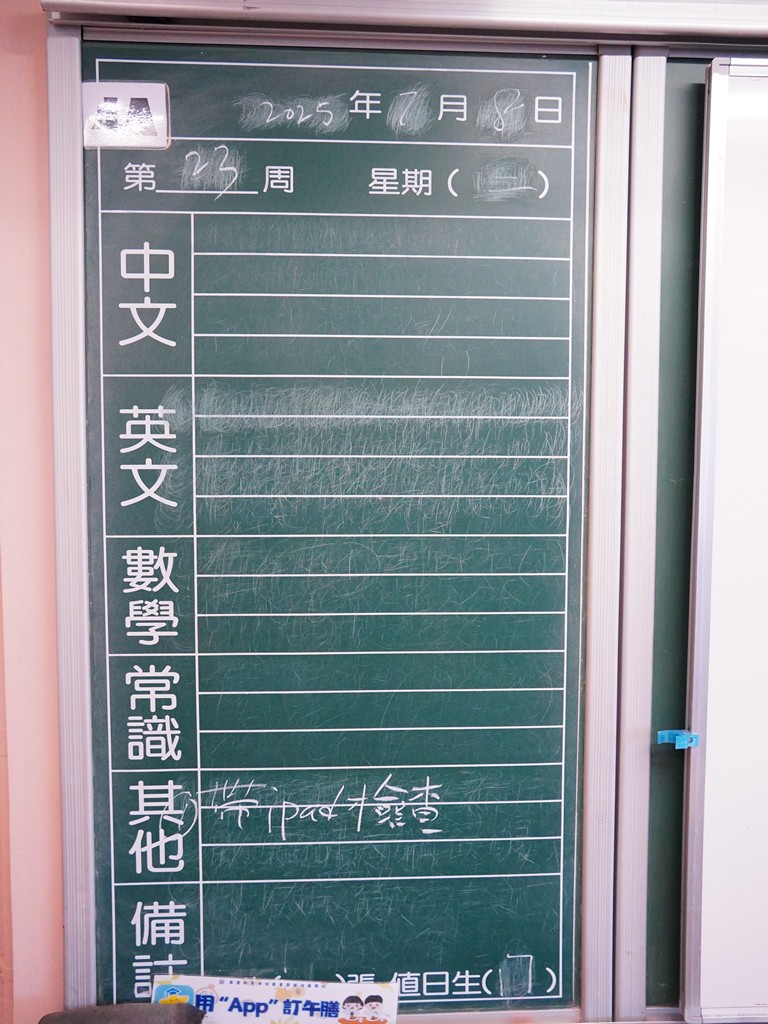 4A
2025年7月8日
第23周 星期(二)
中文
英文
數學
常識
其他 ① 帶ipad檢查
備註
張 值日生(7)
用“App”訂午膳